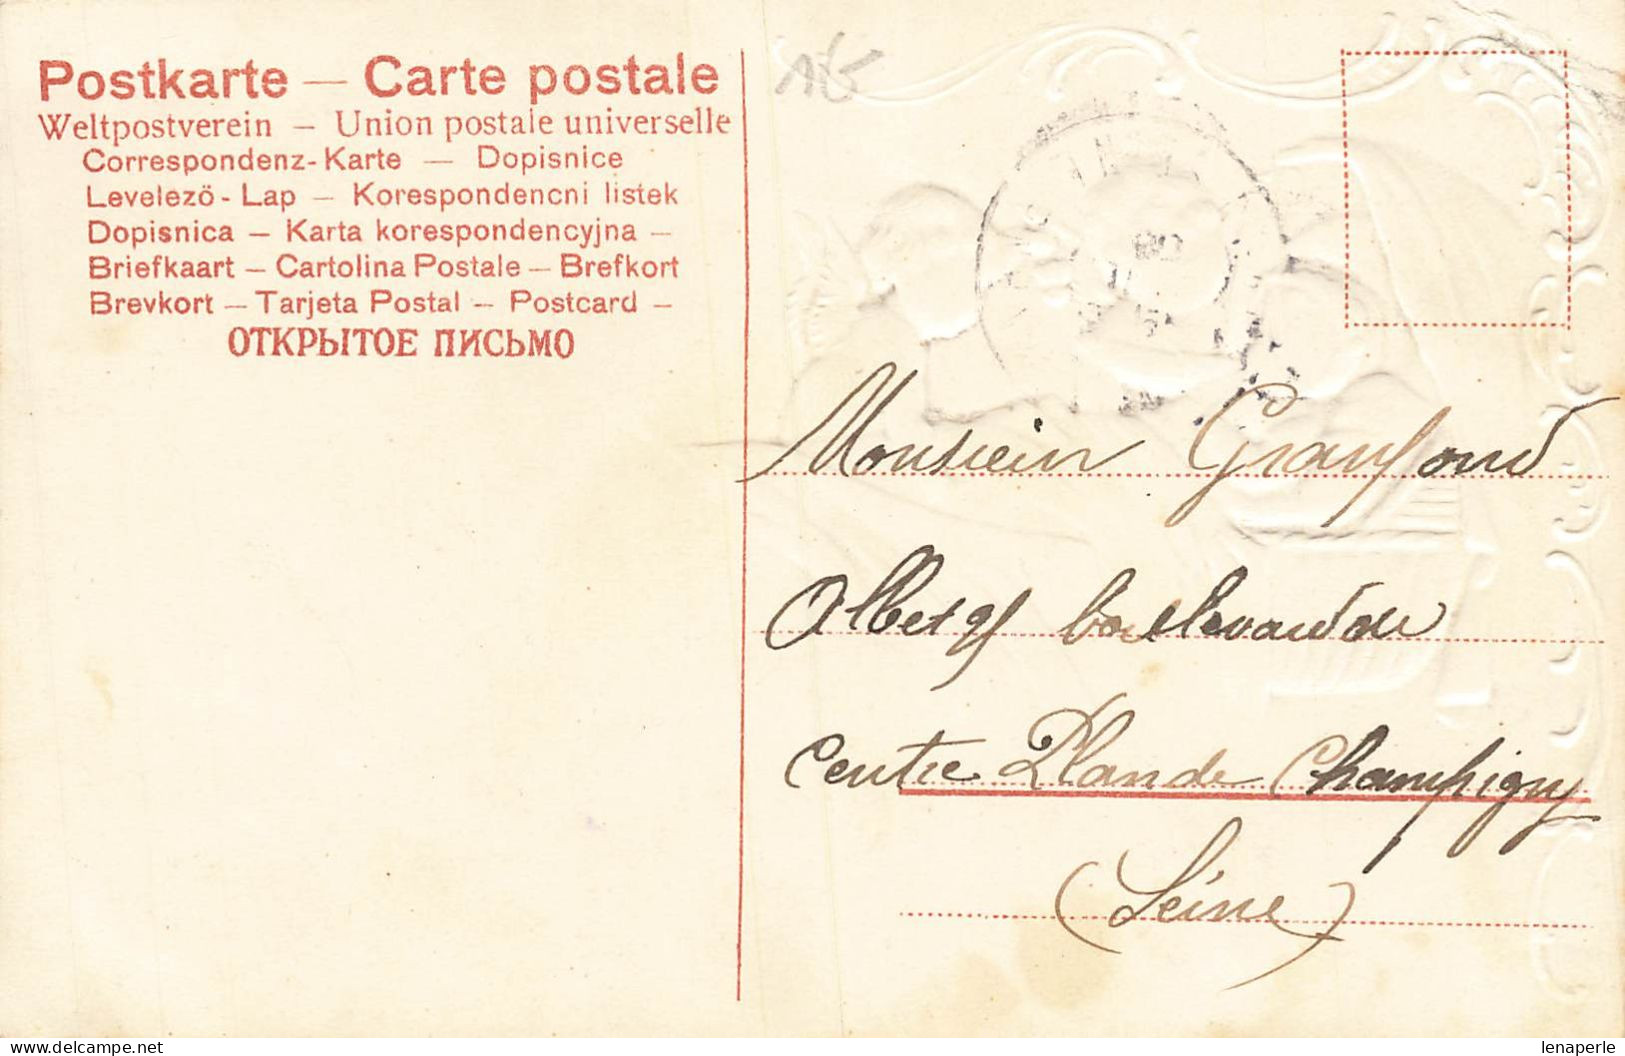 Postkarte — Carte postale
Weltpostverein — Union postale universelle
Correspondenz-Karte — Dopisnice
Levelezö - Lap — Korespondencni listek
Dopisnica — Karta korespondencyjna —
Briefkaart — Cartolina Postale — Brefkort
Brevkort — Tarjeta Postal — Postcard —
ОТКРЫТОЕ ПИСЬМО
Monsieur
boulevard du
Centre Champigny
(Seine)
lenaperle